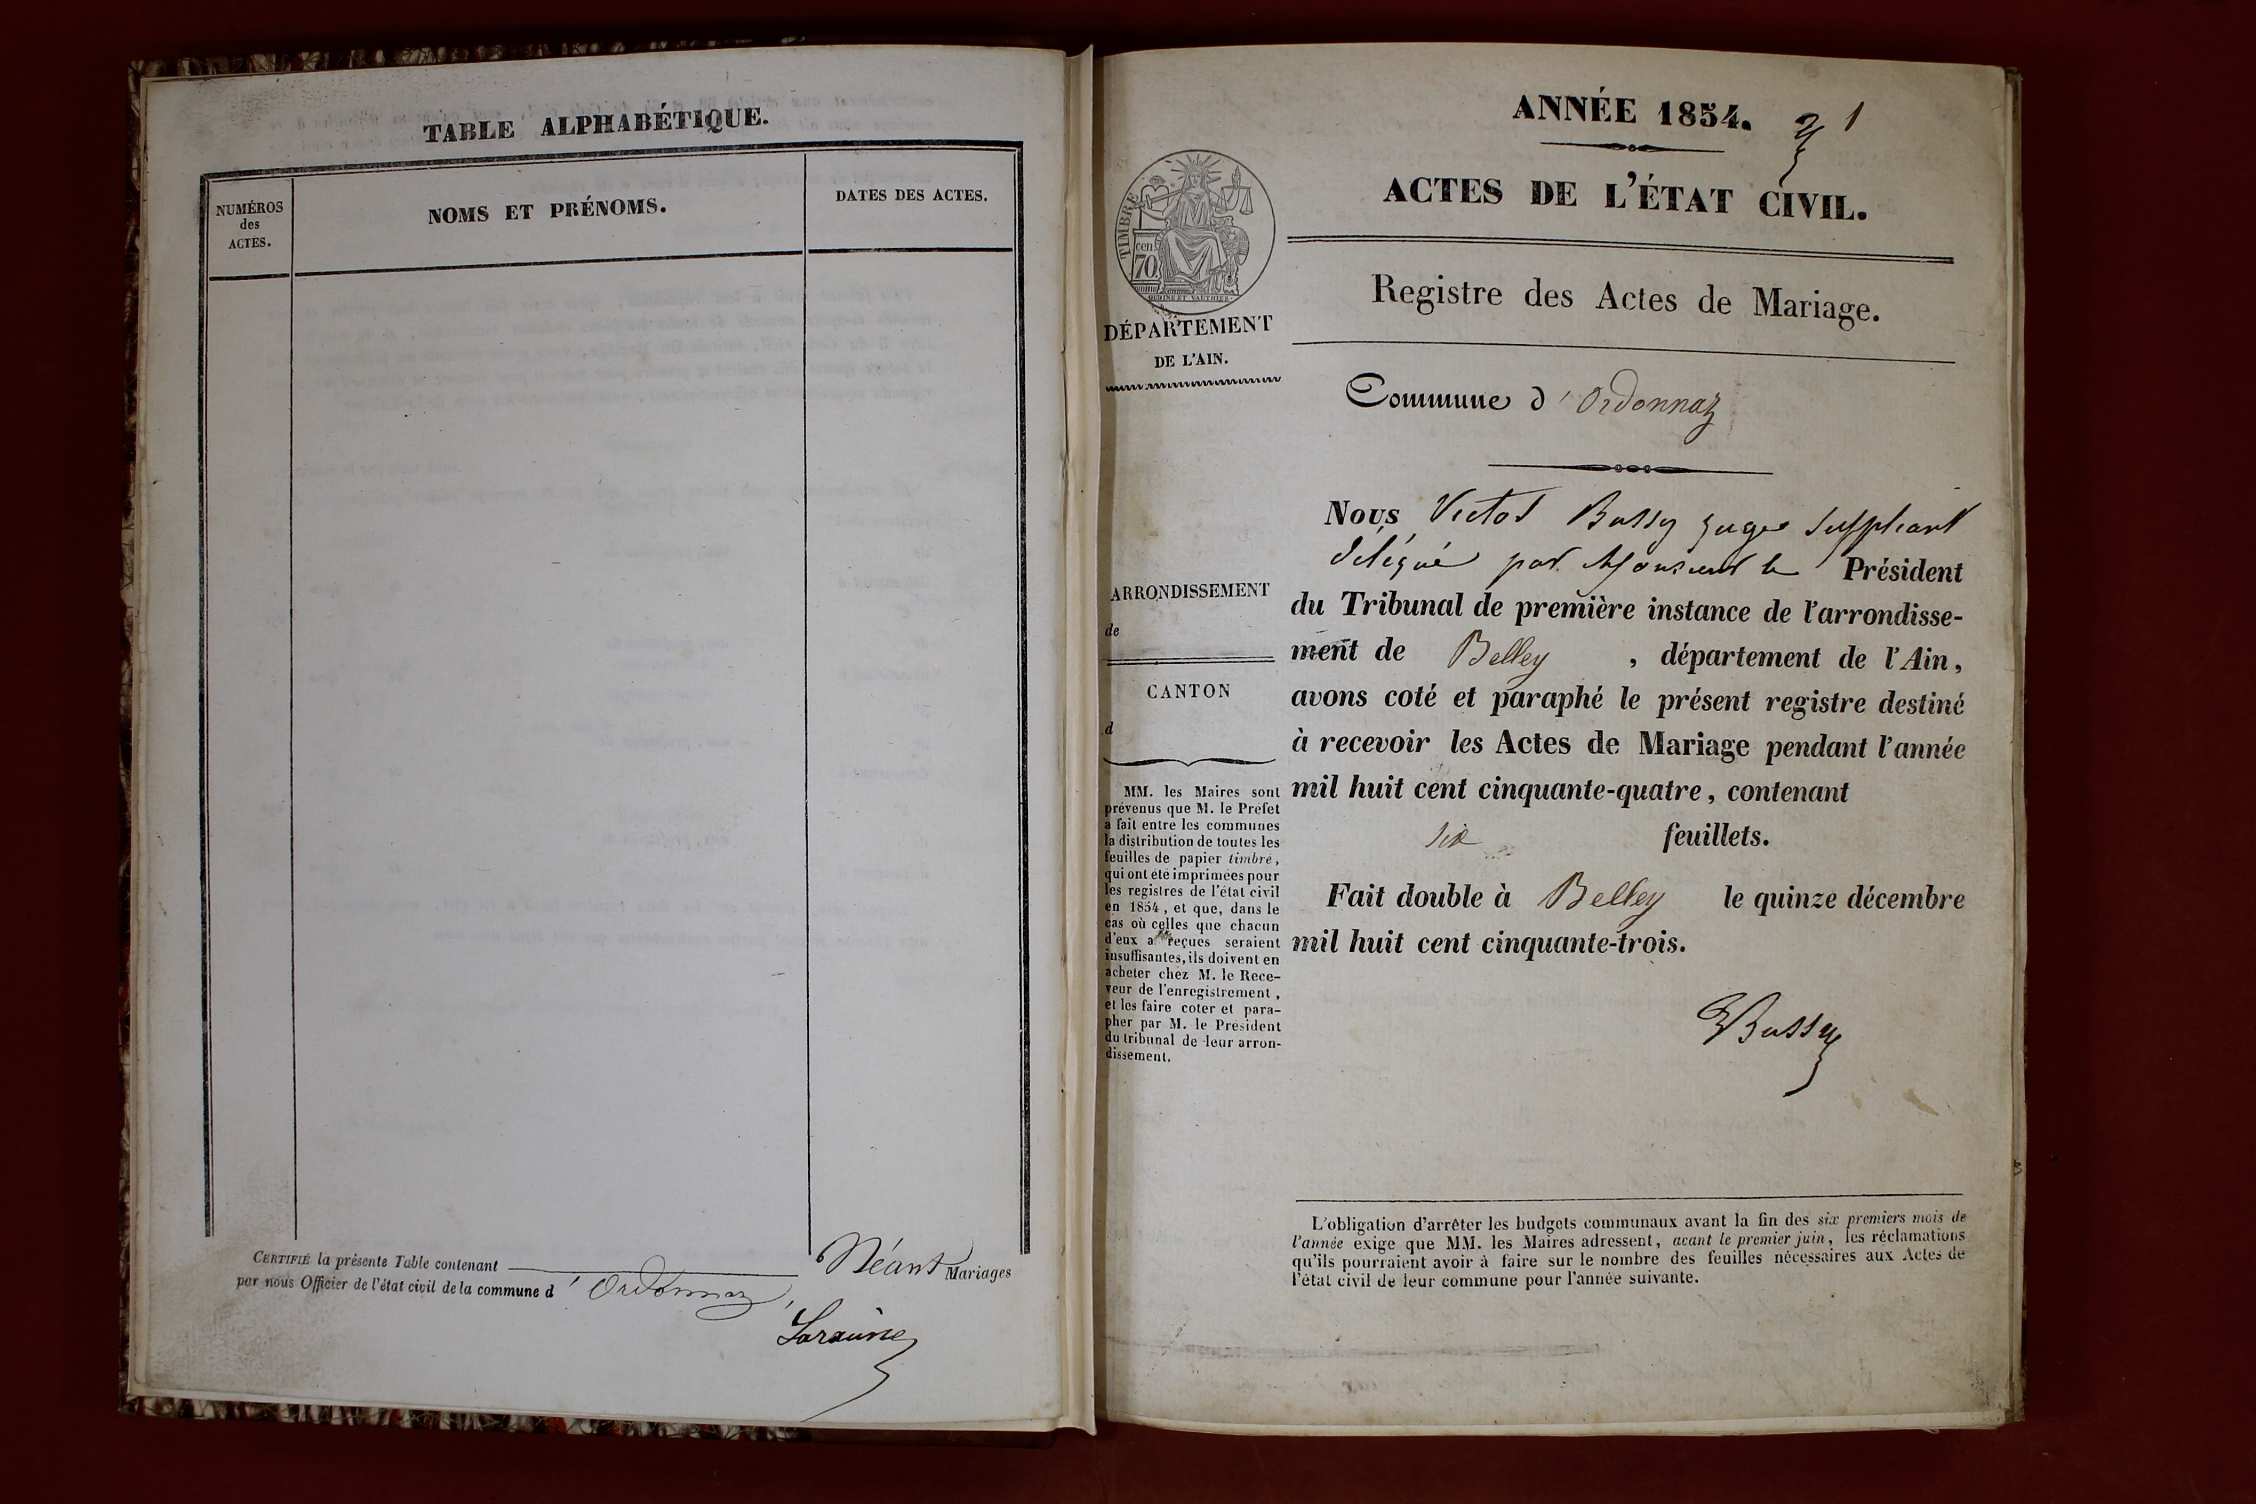 TABLE ALPHABÉTIQUE.
NUMÉROS
des
ACTES.
NOMS ET PRÉNOMS.
DATES DES ACTES.
CERTIFIÉ la présente Table contenant Néant Mariages
par nous Officier de l'état civil de la commune d'Ordonnaz,
ANNÉE 1854. 1
ACTES DE L'ÉTAT CIVIL.
TIMBRE
cen
70
Registre des Actes de Mariage.
DÉPARTEMENT
DE L'AIN.
Commune d'Ordonnaz
Nous Victor Bussy Juge Suppléant
délégué par Monsieur le Président
du Tribunal de première instance de l'arrondisse-
ment de Belley, département de l'Ain,
avons coté et paraphé le présent registre destiné
à recevoir les Actes de Mariage pendant l'année
mil huit cent cinquante-quatre, contenant
six feuillets.
Fait double à Belley le quinze décembre
mil huit cent cinquante-trois.
VBussy
ARRONDISSEMENT
de
CANTON
d
MM. les Maires sont
prévenus que M. le Préfet
a fait entre les communes
la distribution de toutes les
feuilles de papier timbré,
qui ont été imprimées pour
les registres de l'état civil
en 1854, et que, dans le
cas où celles que chacun
d'eux a reçues seraient
insuffisantes, ils doivent en
acheter chez M. le Rece-
veur de l'enregistrement,
et les faire coter et para-
pher par M. le Président
du tribunal de leur arron-
dissement.
L'obligation d'arrêter les budgets communaux avant la fin des six premiers mois de
l'année exige que MM. les Maires adressent, avant le premier juin, les réclamations
qu'ils pourraient avoir à faire sur le nombre des feuilles nécessaires aux Actes de
l'état civil de leur commune pour l'année suivante.